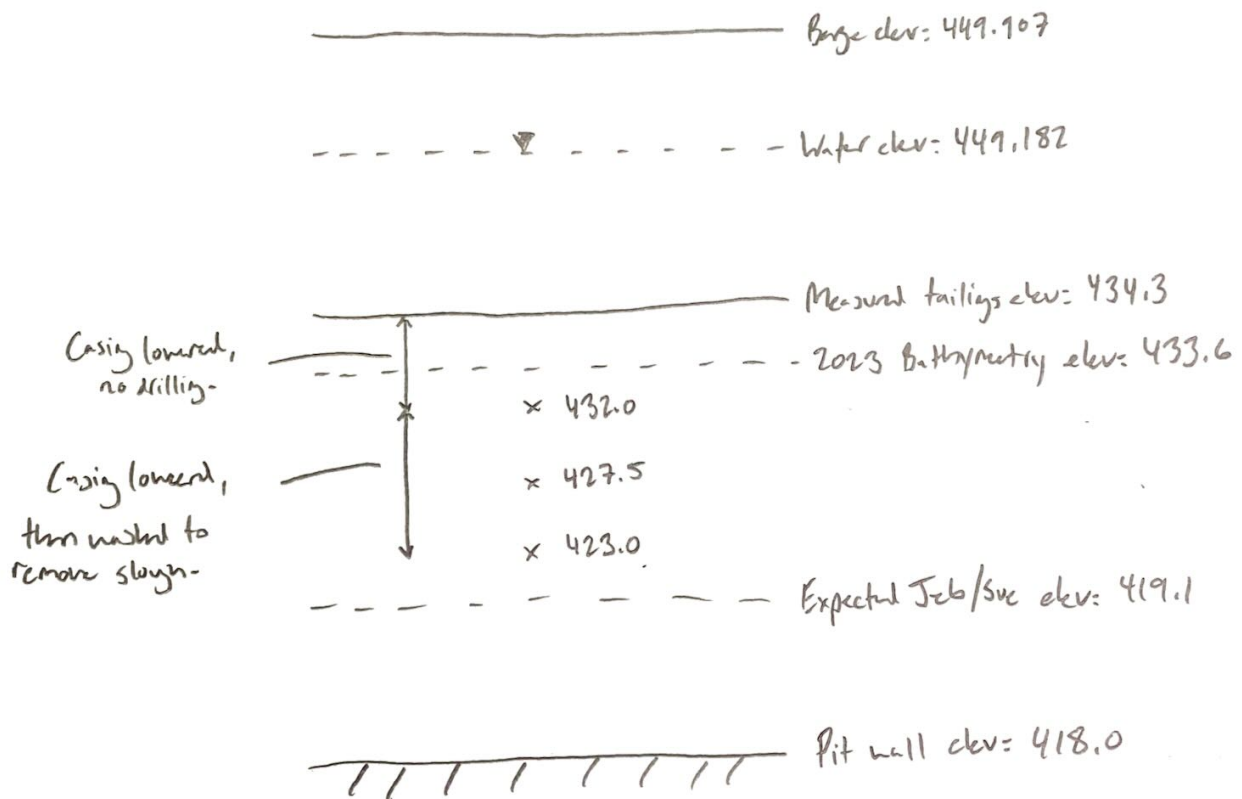 Barge elev: 449.907
Water elev: 449.182
Measured tailings elev: 434.3
Casing lowered,
no drilling.
2023 Bathymetry elev: 433.6
x 432.0
x 427.5
Casing lowered,
then washed to
remove slough.
x 423.0
Expected elev: 419.1
Pit wall elev: 418.0